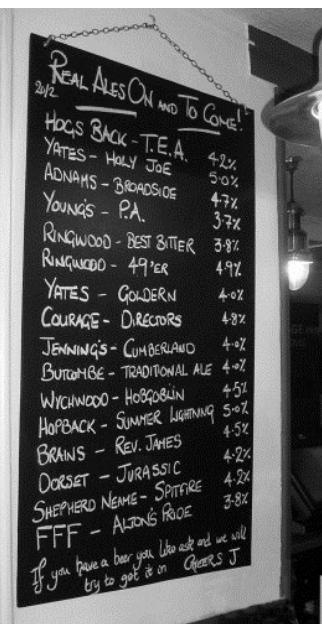 REAL ALES ON AND TO COME!
20/2
HOGS BACK - T.E.A. 4.2%
YATES - HOLY JOE 5.0%
ADNAMS - BROADSIDE 4.7%
YOUNG'S - P.A. 3.7%
RINGWOOD - BEST BITTER 3.8%
RINGWOOD - 49'ER 4.9%
YATES - GOLDERN 4.0%
COURAGE - DIRECTORS 4.8%
JENNING'S - CUMBERLAND 4.0%
BUTCOMBE - TRADITIONAL ALE 4.0%
WYCHWOOD - HOBGOBLIN 4.5%
HOPBACK - SUMMER LIGHTNING 5.0%
BRAINS - REV. JAMES 4.5%
DORSET - JURASSIC 4.2%
SHEPHERD NEAME - SPITFIRE 4.2%
FFF - ALTON'S PRIDE 3.8%
If you have a beer you like ask and we will
try to get it in CHEERS J